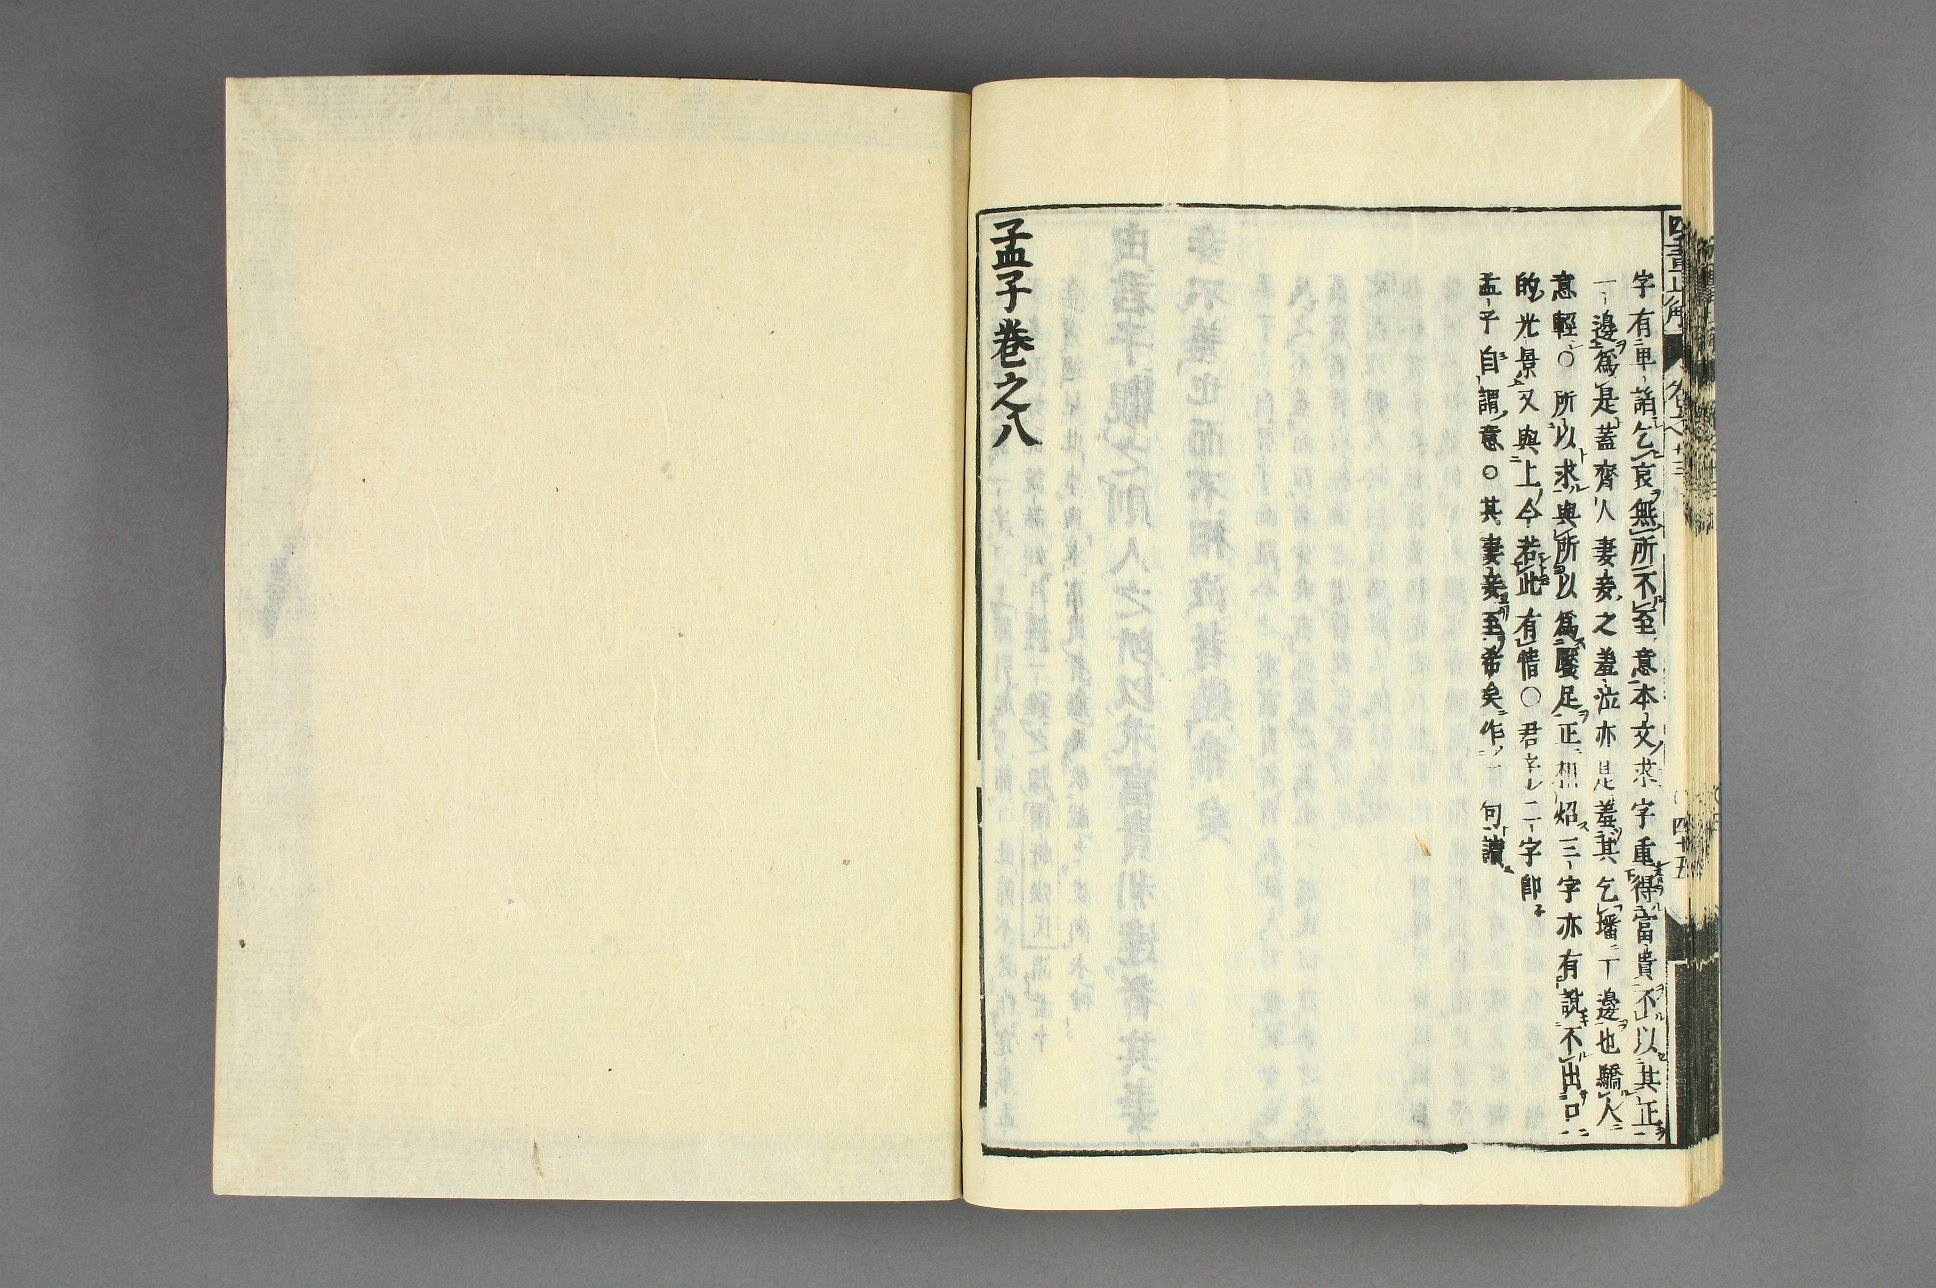 字有車諸乞哀無所不至意本文求字重得富貴不以其正
一邊爲是蓋齊人妻妾之羞泣亦是羞其乞墦一邊也驕人
意輕○所以求與所以爲饜足正相炤三字亦有說不出口
的光景又與上今若此有情○君子二字卽
孟子自謂意○其妻妾至希矣作一句讀
孟子卷之八
四書正解
四十五